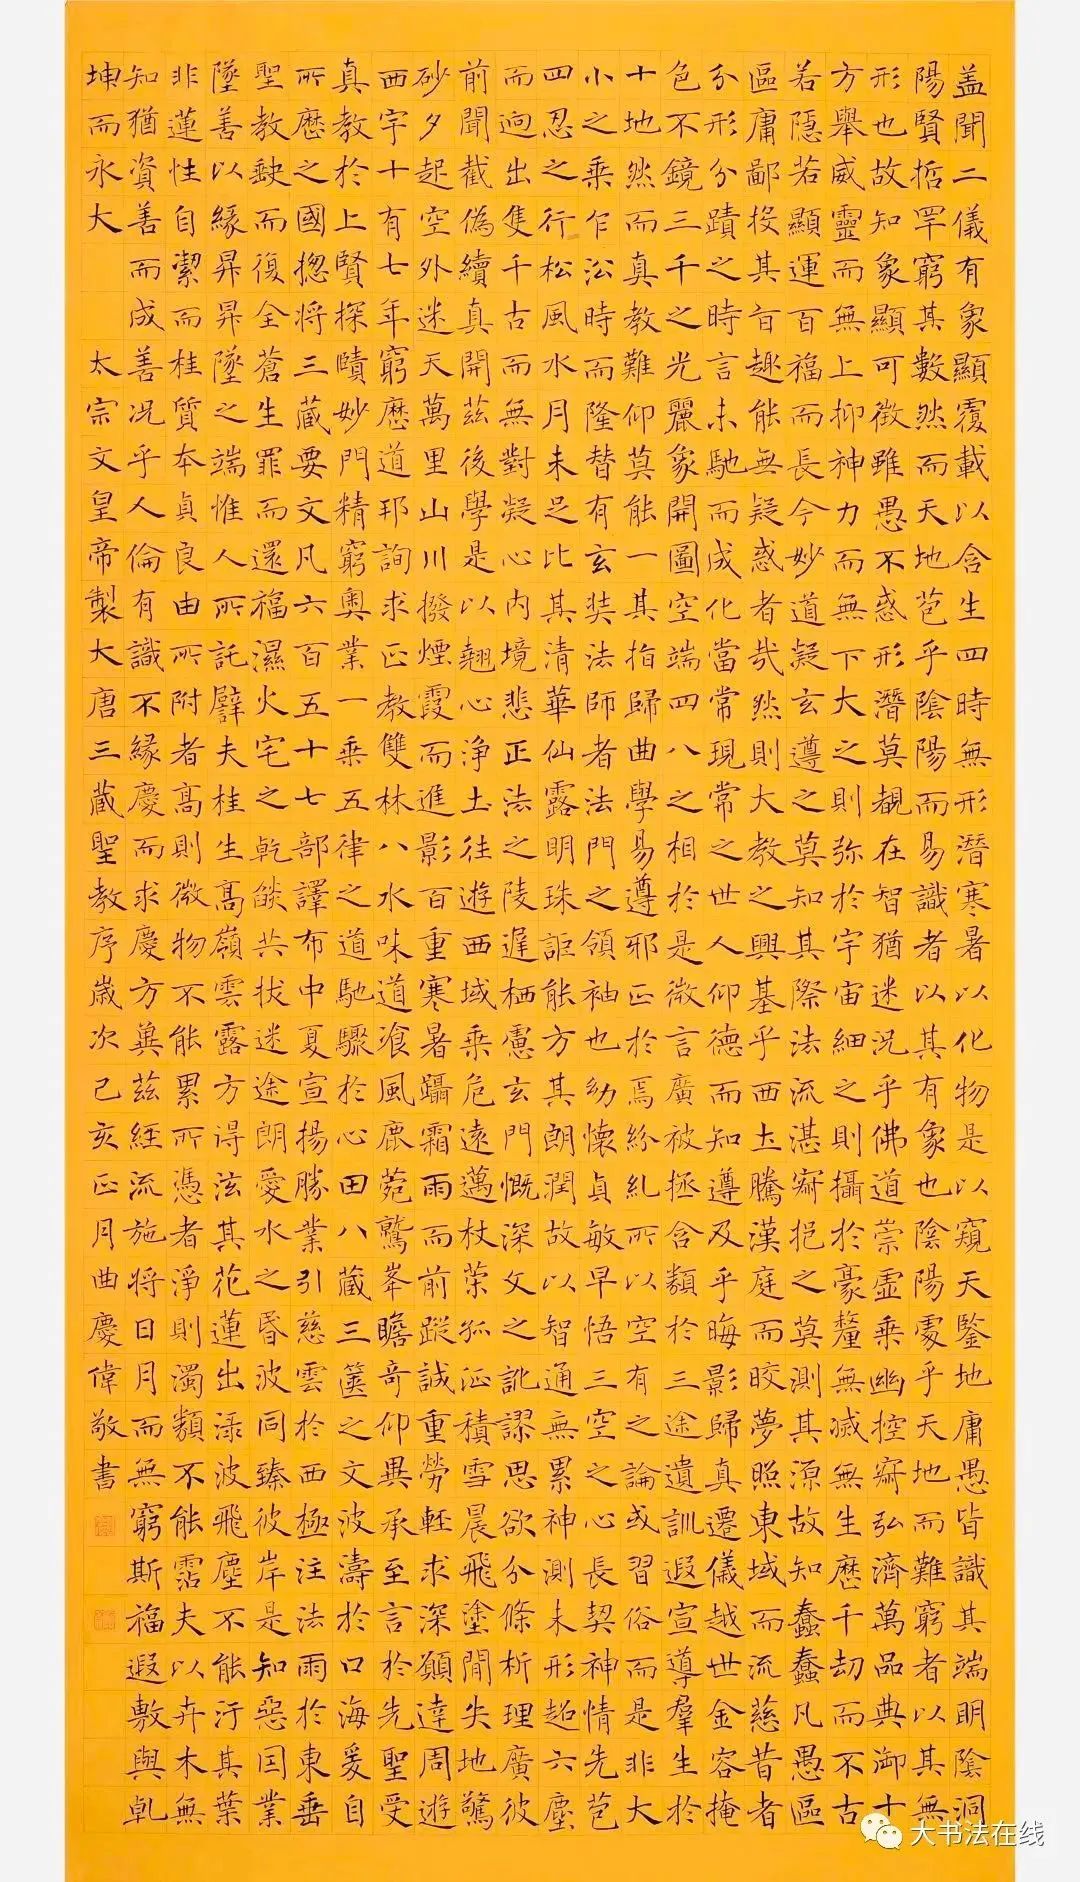 盖聞二儀有象顯覆載以含生四時無形潛寒暑以化物是以窺天鑒地庸愚皆識其端明陰洞
陽賢哲罕窮其數然而天地苞乎陰陽而易識者以其有象也陰陽處乎天地而難窮者以其無
形也故知象顯可徵雖愚不惑形潛莫覩在智猶迷況乎佛道崇虛乘幽控寂弘濟萬品典御十
方舉威靈而無上抑神力而無下大之則弥於宇宙細之則攝於豪釐無滅無生歷千劫而不古
若隱若顯運百福而長今妙道凝玄遵之莫知其際法流湛寂挹之莫測其源故知蠢蠢凡愚區
區庸鄙投其旨趣能無疑惑者哉然則大教之興基乎西土騰漢庭而皎夢照東域而流慈昔者
分形分蹟之時言未馳而成化當常現常之世人仰德而知遵及乎晦影歸真遷儀越世金容掩
色不鏡三千之光麗象開圖空端四八之相於是微言廣被拯含類於三途遺訓遐宣導羣生於
十地然而真教難仰莫能一其指歸曲學易遵邪正於焉紛糺所以空有之論或習俗而是非大
小之乘乍沿時而隆替有玄奘法師者法門之領袖也幼懷貞敏早悟三空之心長契神情先苞
四忍之行松風水月未足比其清華仙露明珠詎能方其朗潤故以智通無累神測未形超六塵
而逈出隻千古而無對凝心內境悲正法之陵遲栖慮玄門慨深文之訛謬思欲分條析理廣彼
前聞截偽續真開茲後學是以翹心淨土往遊西域乘危遠邁杖策孤征積雪晨飛塗閒失地驚
砂夕起空外迷天萬里山川撥煙霞而進影百重寒暑躡霜雨而前蹤誠重勞輕求深願達周遊
西宇十有七年窮歷道邦詢求正教雙林八水味道飡風鹿菀鷲峯瞻奇仰異承至言於先聖受
真教於上賢探賾妙門精窮奧業一乘五律之道馳驟於心田八藏三篋之文波濤於口海爰自
所歷之國惣將三藏要文凡六百五十七部譯布中夏宣揚勝業引慈雲於西極注法雨於東垂
聖教缺而復全蒼生罪而還福濕火宅之乾燄共拔迷途朗愛水之昏波同臻彼岸是知惡因業
墜善以緣昇昇墜之端惟人所託譬夫桂生高嶺雲露方得泫其花蓮出淥波飛塵不能汙其葉
非蓮性自潔而桂質本貞良由所附者高則微物不能累所憑者淨則濁類不能霑夫以卉木無
知猶資善而成善況乎人倫有識不緣慶而求慶方冀茲經流施將日月而無窮斯福遐敷與乹
坤而永大 太宗文皇帝製大唐三藏聖教序歲次己亥正月曲慶偉敬書
大书法在线